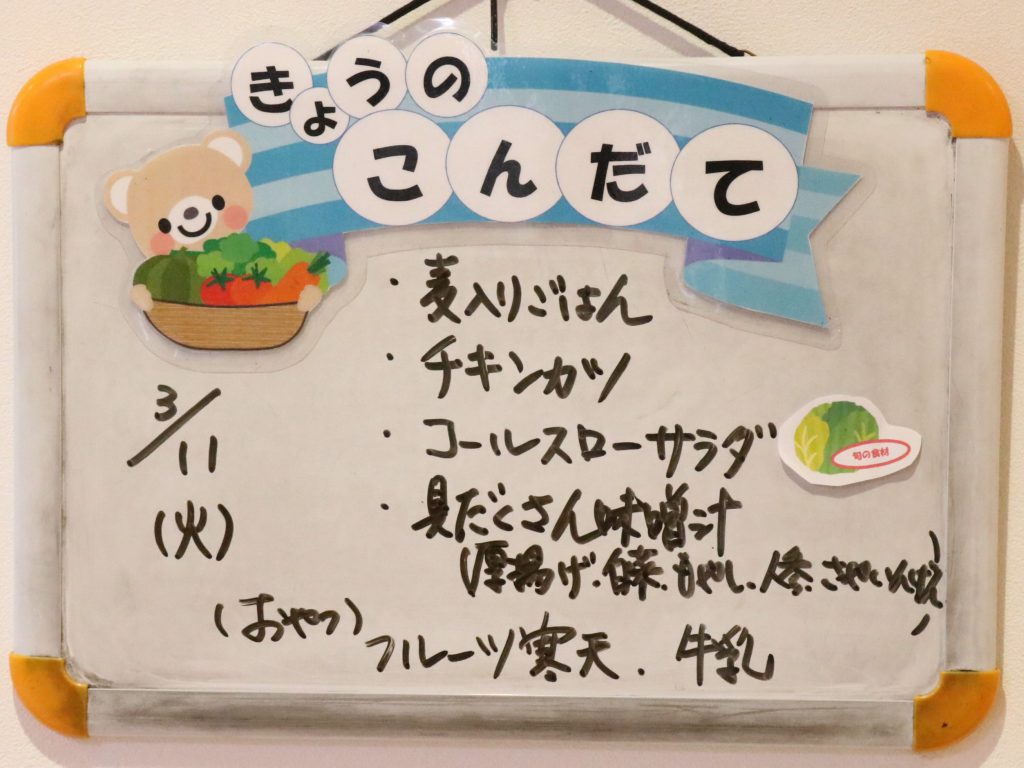 きょうの
こんだて
・麦入りごはん
・チキンカツ
3/11
・コールスローサラダ
旬の食材
(火)
・具だくさん味噌汁
(厚揚げ、白菜、もやし、人参、さやいんげん)
(おやつ)
フルーツ寒天、牛乳